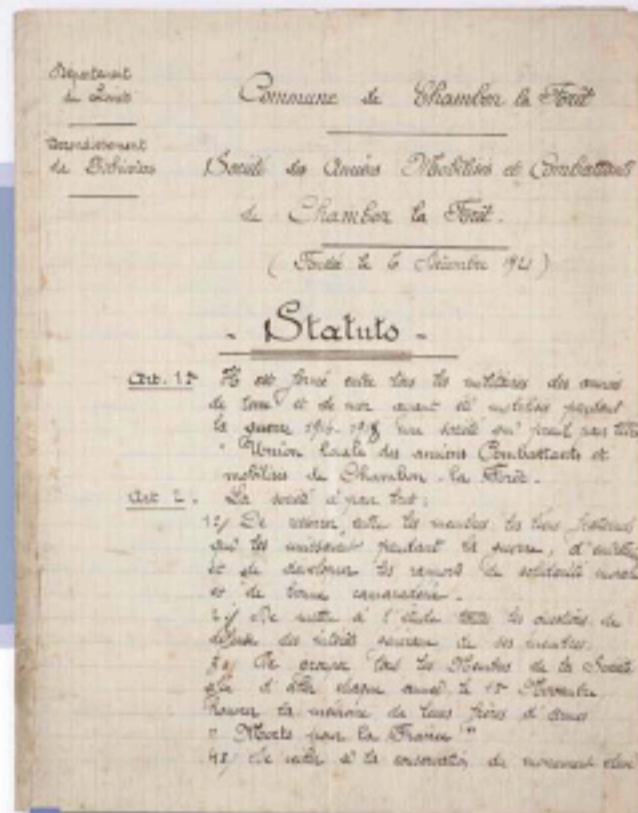 Département
du Loiret
Arrondissement
de Pithiviers
Commune de Chambon la Forêt
Société des Anciens Mobilisés et Combattants
de Chambon la Forêt.
( Fondé le 6 Décembre 1921 )
- Statuts -
Art. 1er Il est formé entre tous les militaires des armées
de terre et de mer ayant été mobilisés pendant
la guerre 1914-1918 une société qui prend pour titre
" Union locale des anciens Combattants et
mobilisés de Chambon-la Forêt.
Art 2. La société a pour but :
1º/ De resserrer entre les membres les liens fraternels
qui les unissaient pendant la guerre, d'entretenir
et de développer les rapports de solidarité morale
et de bonne camaraderie.
2º/ De mettre à l'étude les questions de
défense des intérêts généraux de ses membres.
3º/ De grouper tous les Membres de la Société
afin d'aller chaque année le Novembre
honorer la mémoire de leurs frères d'armes
" Morts pour la France "
4º/ De veiller à la conservation du monument élevé